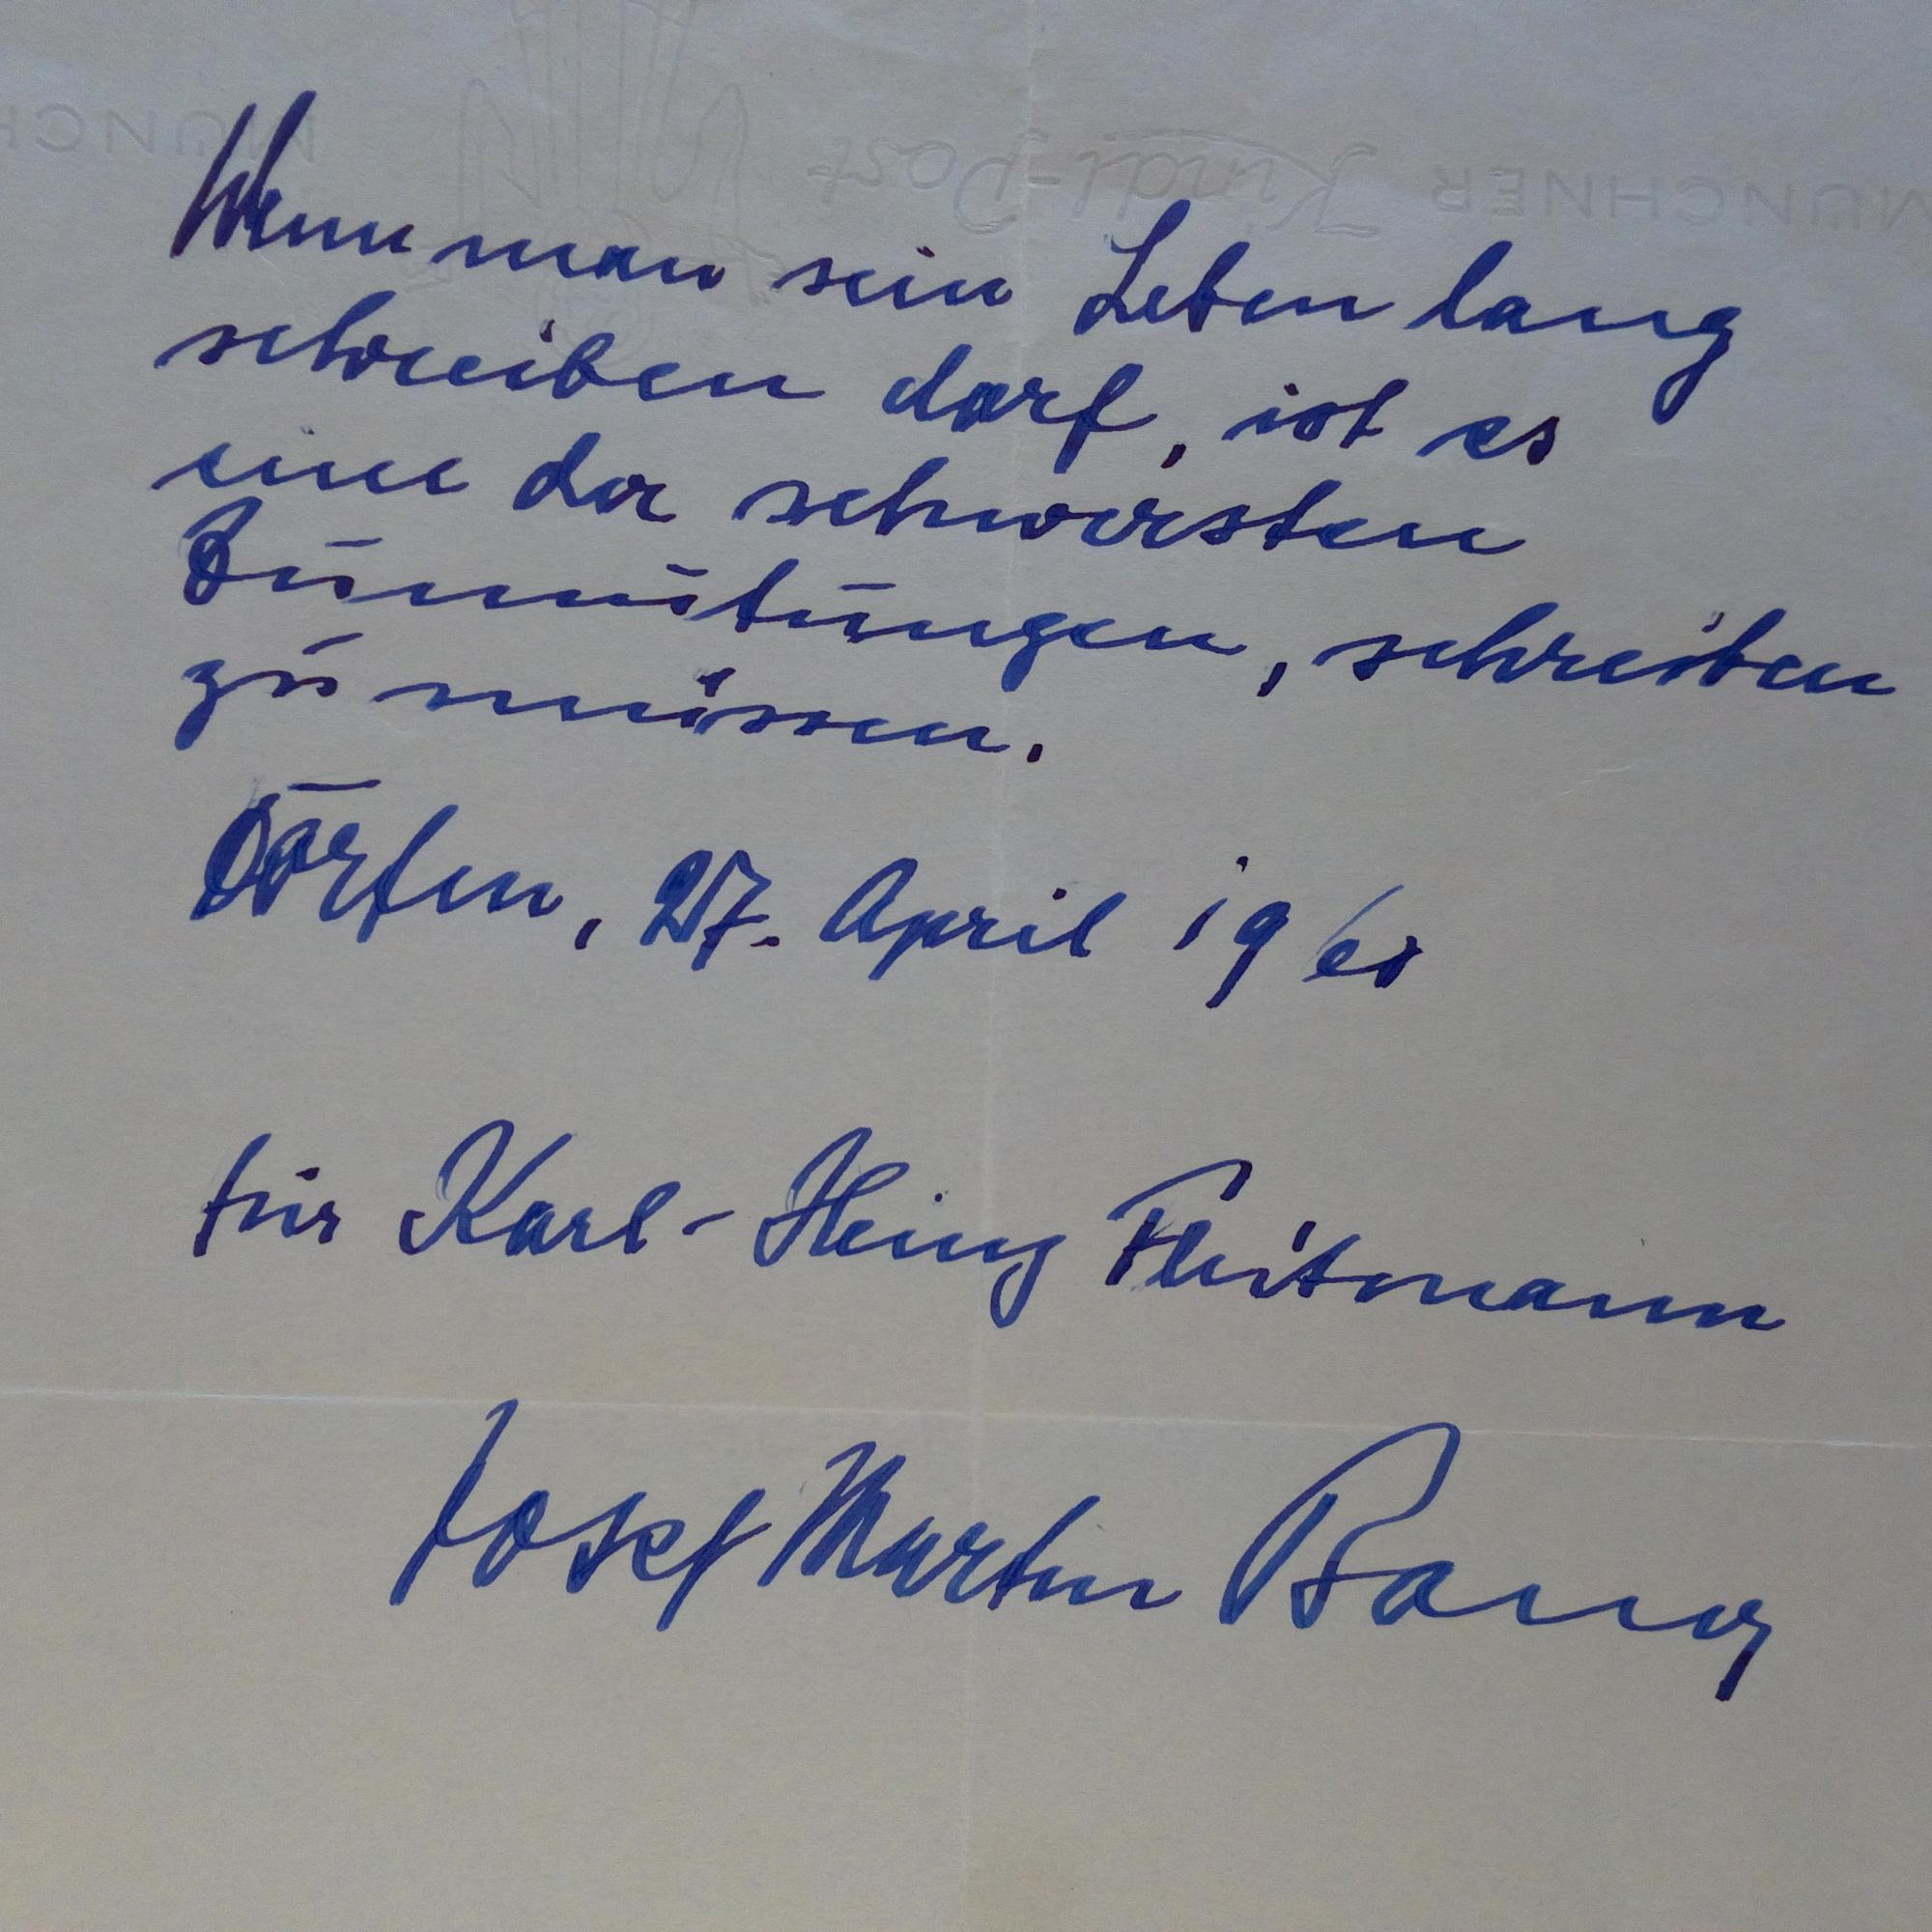 MÜNCHNER Kindl-Post MÜNCH
Wenn man sein Leben lang
schreiben darf, ist es
eine der schwersten
Zumutungen, schreiben
zu müssen.
Dorfen, 27. April 1960
für Karl-Heinz Fleitmann
Josef Martin Bauer